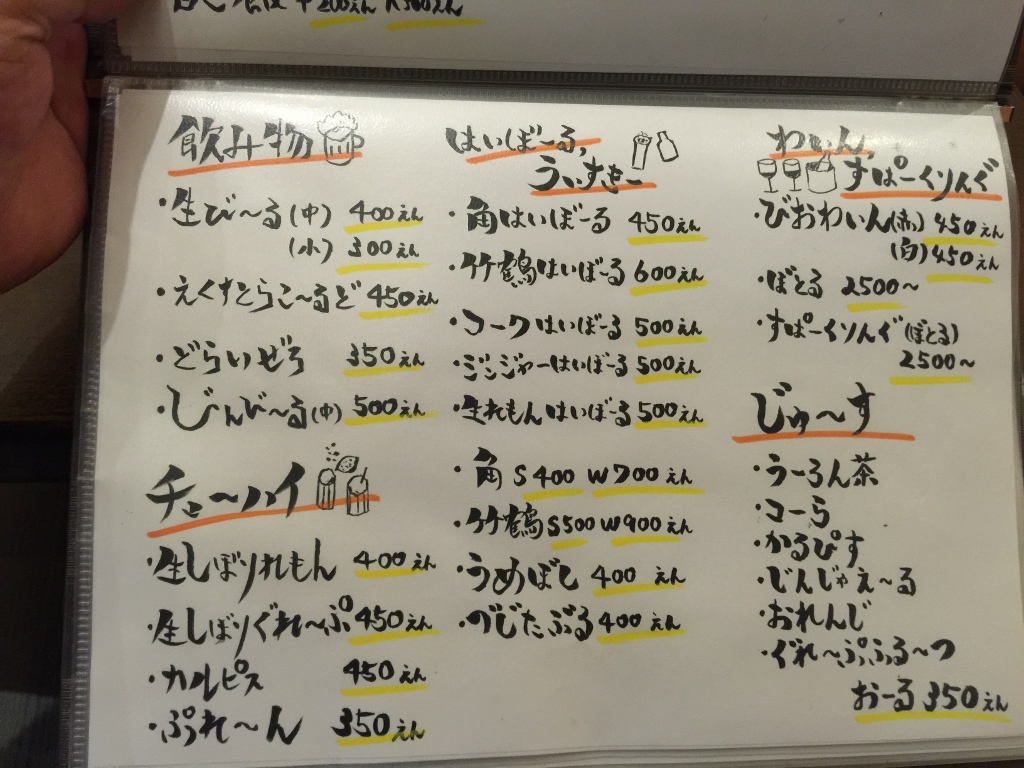 200えん 500えん
飲み物
・生び〜る(中) 400えん
(小) 300えん
・えくすとらこ〜るど 450えん
・どらいぜろ 350えん
・じんび〜る(中) 500えん
チュ〜ハイ
・生しぼりれもん 400えん
・生しぼりぐれ〜ぷ 450えん
・カルピス 450えん
・ぷれ〜ん 350えん
はいぼーる,
うぃすきー
・角はいぼーる 450えん
・竹鶴はいぼ〜る 600えん
・コークはいぼーる 500えん
・ジンジャーはいぼーる 500えん
・生れもんはいぼーる 500えん
・角 S400 W700えん
・竹鶴 S500 W900えん
・うめぼし 400えん
・のじたぶる 400えん
わいん
すぱーくりんぐ
・びおわいん(赤) 450えん
(白) 450えん
・ぼとる 2500〜
・すぱーくりんぐ(ぼとる)
2500〜
じゅ〜す
・うーろん茶
・コーら
・かるぴす
・じんじゃえ〜る
・おれんじ
・ぐれ〜ぷふる〜つ
おーる 350えん